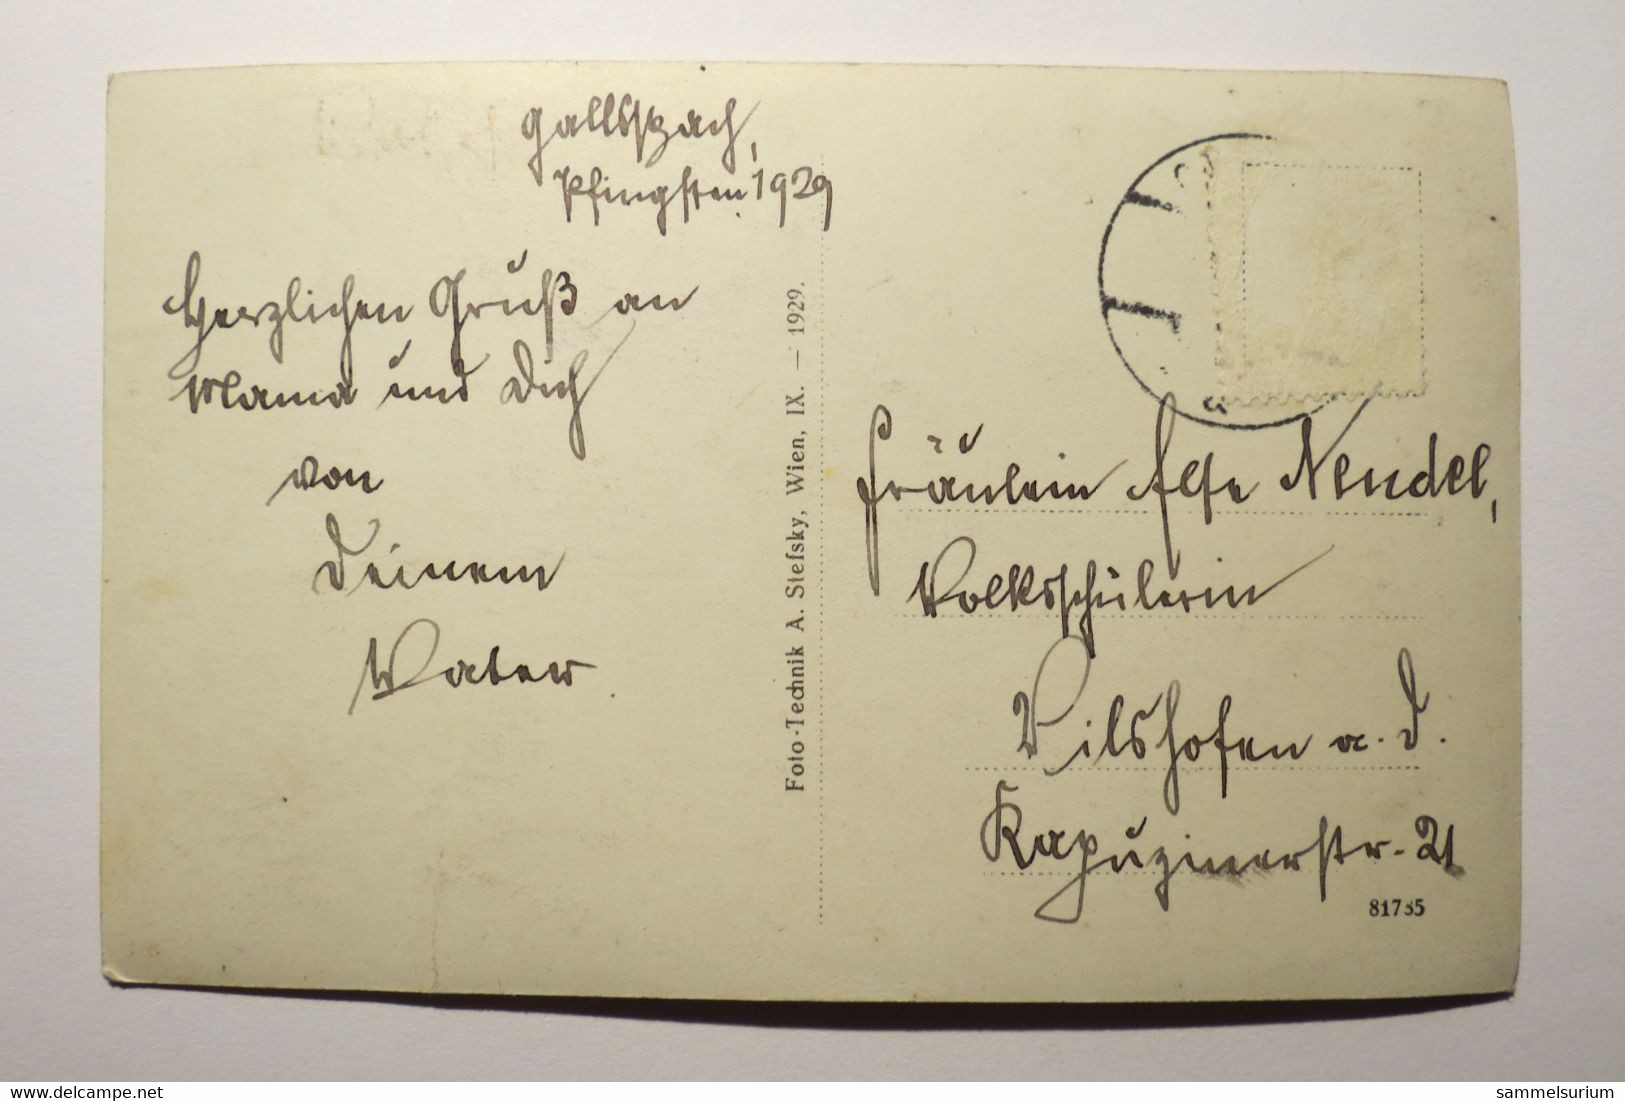 Gallspach,
Pfingsten 1929
Herzlichen Gruß an
Mama und Dich
von
Deinem
Vater
Foto-Technik A. Stefsky, Wien, IX. — 1929.
Fräulein Ilse Nendel,
Volksschülerin
Vilshofen a. D.
Kapuzinerstr. 21
81735
sammelsurium
www.delcampe.net